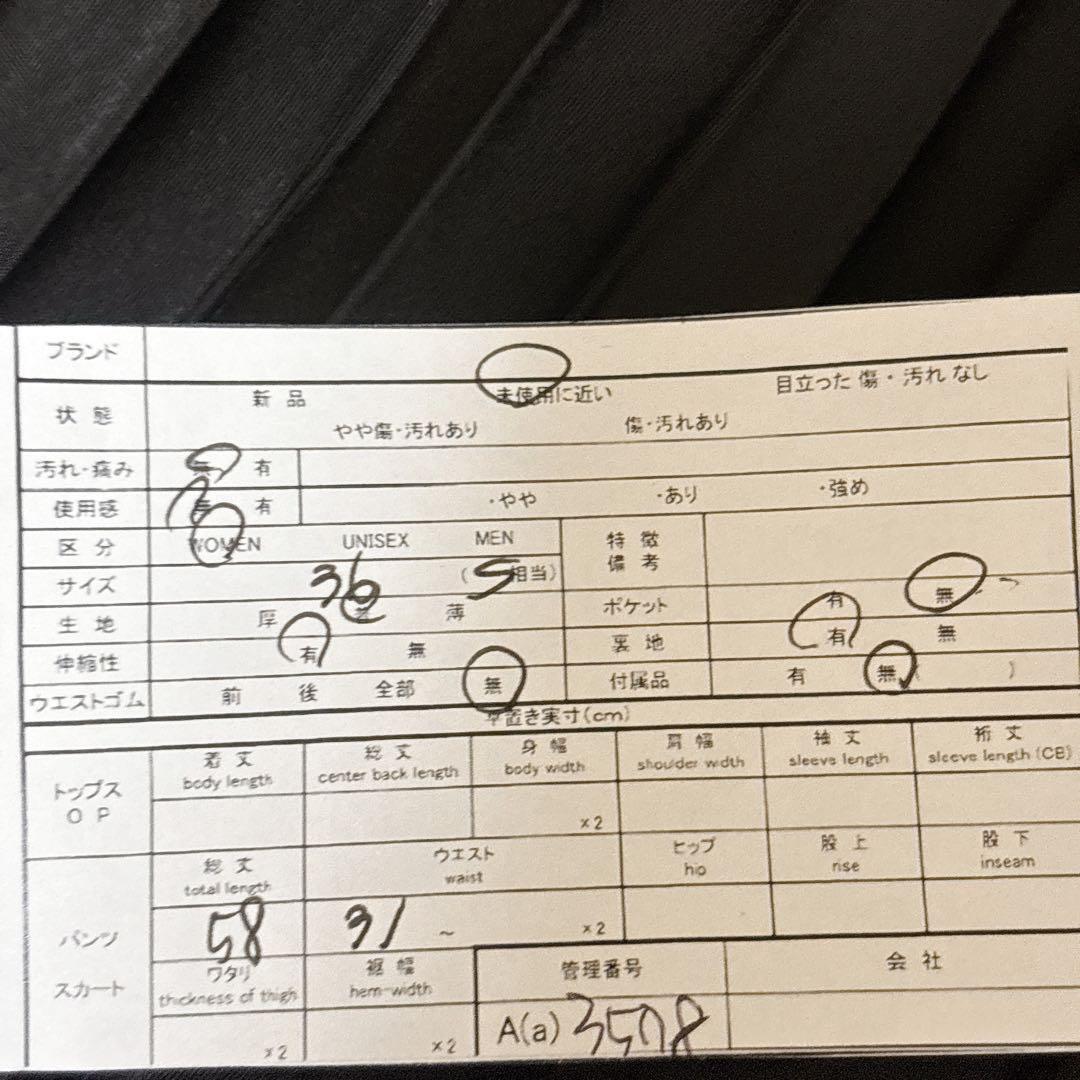 ブランド
状態 新品 未使用に近い 目立った傷・汚れなし
やや傷・汚れあり 傷・汚れあり
汚れ・痛み 無 有
使用感 無 有 ・やや ・あり ・強め
区分 WOMEN UNISEX MEN 特徴
備考
サイズ 36 (S相当)
生地 厚 薄 ポケット 有 無
伸縮性 有 無 裏地 有 無
ウエストゴム 前 後 全部 無 付属品 有 無( )
平置き実寸(cm)
トップス
OP
着丈 総丈 身幅 肩幅 袖丈 裄丈
body length center back length body width shoulder width sleeve length sleeve length (CB)
×2
パンツ
スカート
総丈 ウエスト ヒップ 股上 股下
total length waist hip rise inseam
58 31 ~ ×2
ワタリ 裾幅 管理番号 会社
thickness of thigh hem-width
×2 ×2 A(a) 3508